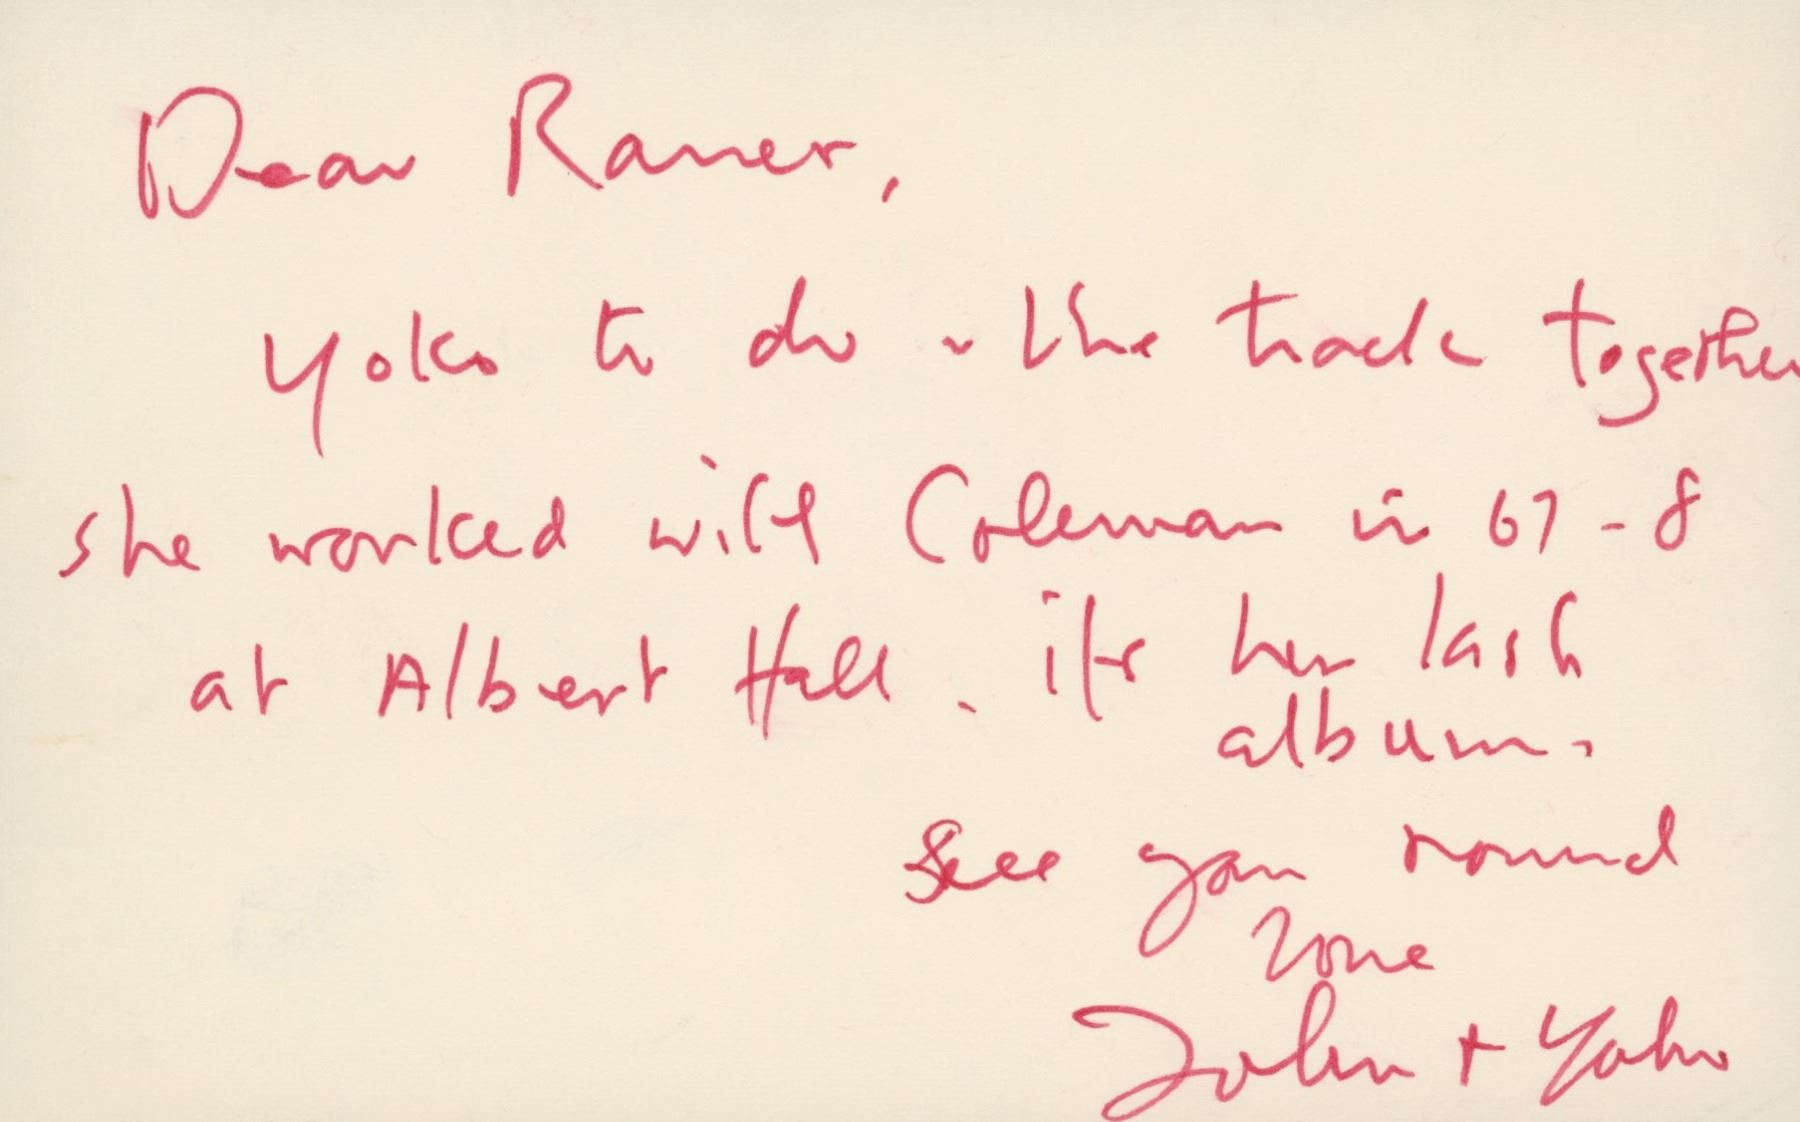 Dear Raner,
Yoko to do ~ the track together
she worked with Coleman in 67-8
at Albert Hall. its her last
album.
See you round
love
John + Yoko